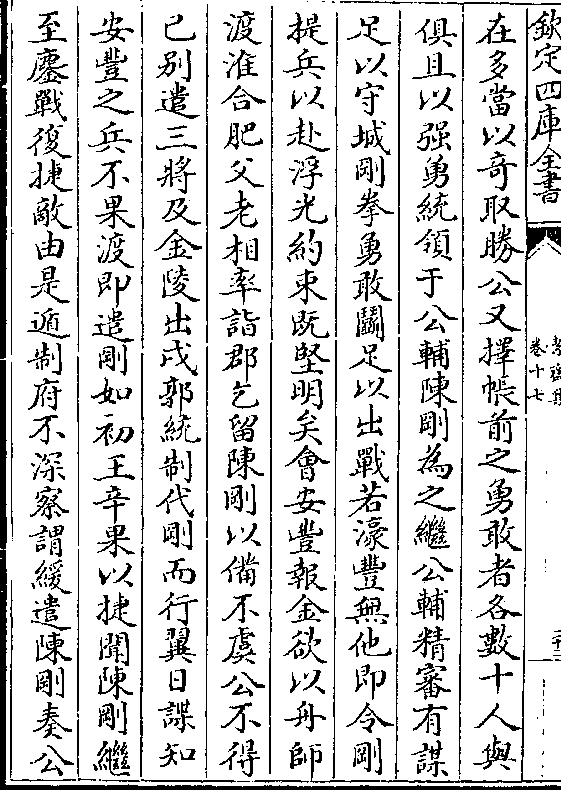 欽定四庫全書
卷十七
在多當以奇取勝公又擇帳前之勇敢者各數十人與
俱且以强勇統領于公輔陳剛為之繼公輔精審有謀
足以守城剛拳勇敢鬭足以出戰若濠豐無他即令剛
提兵以赴浮光約束既堅明矣會安豐報金欲以舟師
渡淮合肥父老相率詣郡乞留陳剛以備不虞公不得
已别遣三將及金陵出戍郭統制代剛而行翼日諜知
安豐之兵不果渡即遣剛如初王辛果以捷聞陳剛繼
至鏖戰復捷敵由是遁制府不深察謂緩遣陳剛奏公